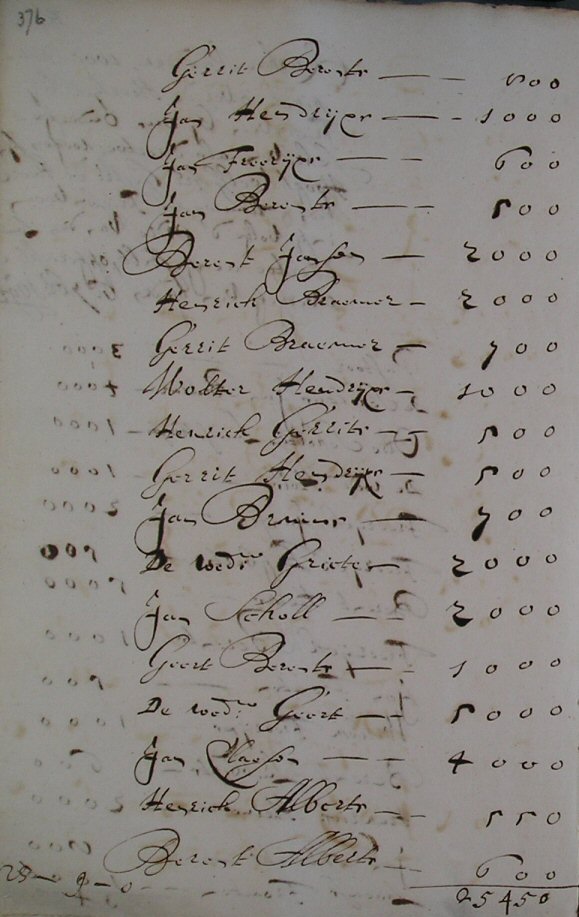 376
Gerrit Berents — — 800
Jan Hendrijx — — 1000
Jan Freerijx — — 600
Jan Berents — — 500
Berent Janson — 2000
Henrick Braemer — 2000
Gerrit Braemer — 700
Wolter Hendrijx — 1000
Henrick Gerrits — 500
Gerrit Hendrijx — 500
Jan — 700
De wed: Grieten 2000
Jan Scholl — — 2000
Geert Berents — 1000
De wed: Geert — 5000
Jan Claeson — — 4000
Henrick Alberts — 550
Berent Alberts — 600
25 — 9 — 0 25450